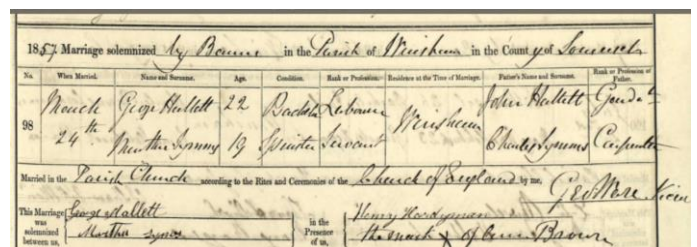 1857. Marriage solemnized by Banns in the Parish of Winsham in the County of Somerset
No. When Married. Name and Surname. Age. Condition. Rank or Profession. Residence at the Time of Marriage. Father's Name and Surname. Rank or Profession of Father.
98 March 24th George Hallett 22 Bachelor Labourer Winsham John Hallett
Martha Symes 19 Spinster Servant Charles Symes Carpenter
Married in the Parish Church according to the Rites and Ceremonies of the Church of England by me, Geo Ware Vicar
This Marriage was solemnized between us, George Hallett in the Presence of us, Henry
Martha Symes the mark x of Ann Brown